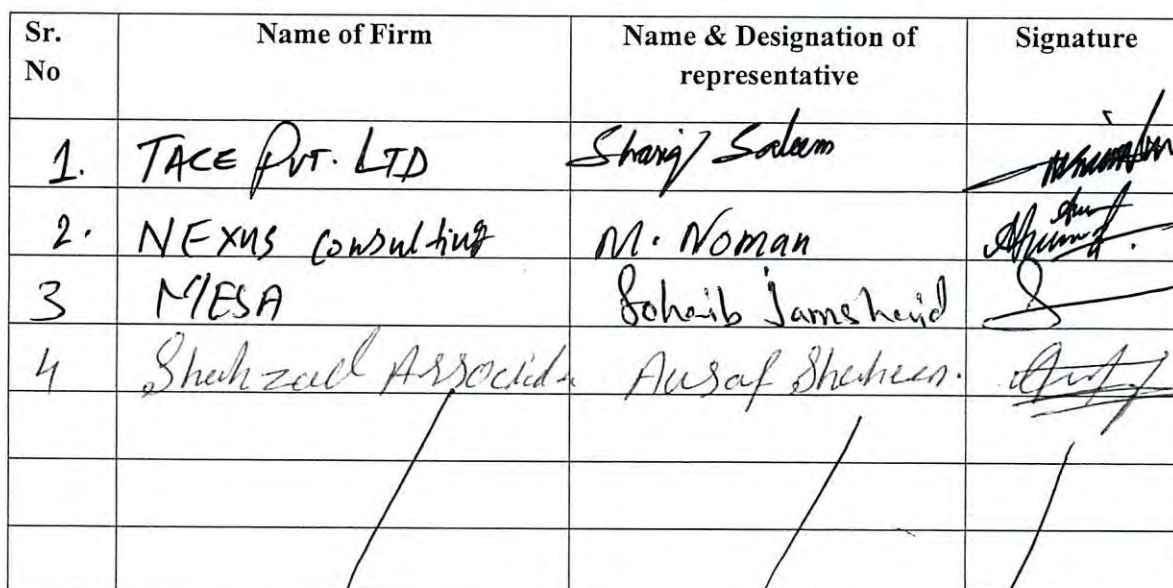 Sr. No Name of Firm Name & Designation of representative Signature
1. TACE PVT. LTD Shariq Saleem
2. NEXUS consulting M. Noman
3 MESA Sohaib Jamsheid
4 Shahzad Associ Ausaf Shaheen.